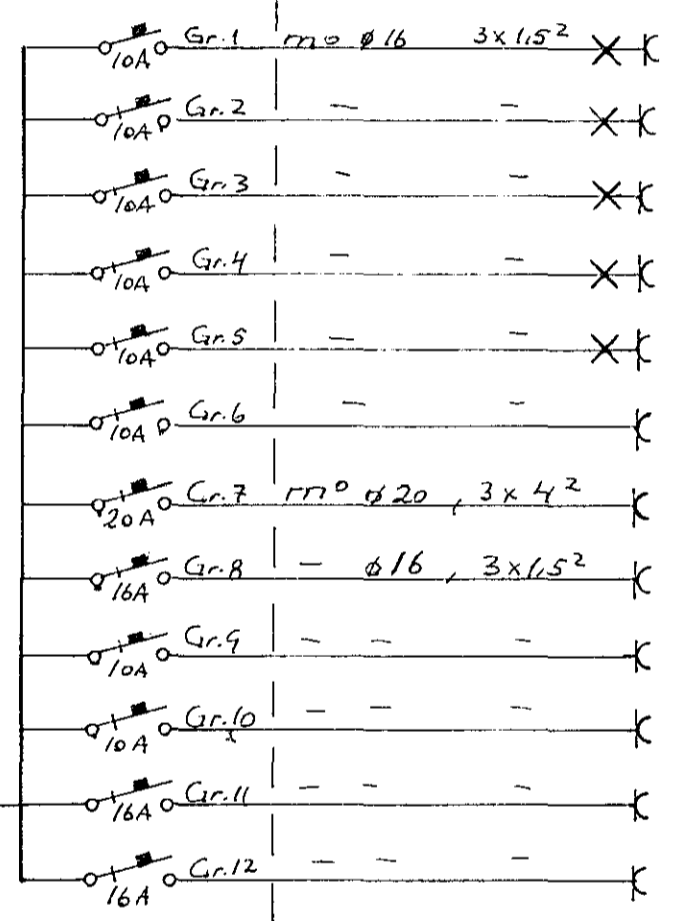 10A Gr.1 mo ø16 3x1,5²
10A Gr.2 — —
10A Gr.3 — —
10A Gr.4 — —
10A Gr.5 — —
10A Gr.6 — —
20A Gr.7 mo ø20, 3x4²
16A Gr.8 — ø16, 3x1,5²
10A Gr.9 — — —
10A Gr.10 — — —
16A Gr.11 — — —
16A Gr.12 — — —